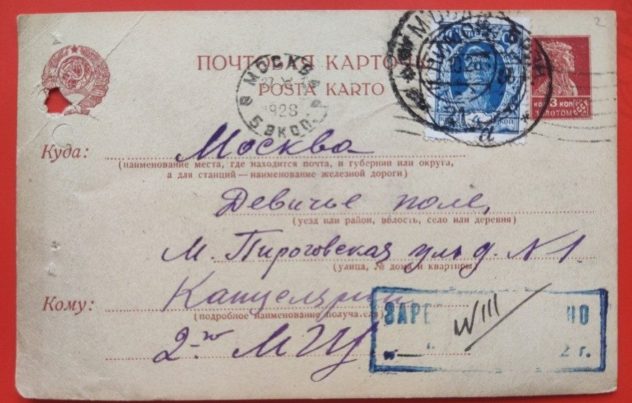 2
ПОЧТОВАЯ КАРТОЧКА
POSTA KARTO
МОСКВА
1928
5 ЭКСП.
3 КОП.
ЗОЛОТОМ
Куда: Москва
(наименование места, где находится почта, и губернии или округа,
а для станций—наименование железной дороги)
Девичье поле,
(уезд или район, волость, село или деревня)
М. Пироговская ул. д. № 1.
(улица, № дома и квартиры)
Кому: Канцелярии
(подробное наименование получа
2-го МГУ
2 г.